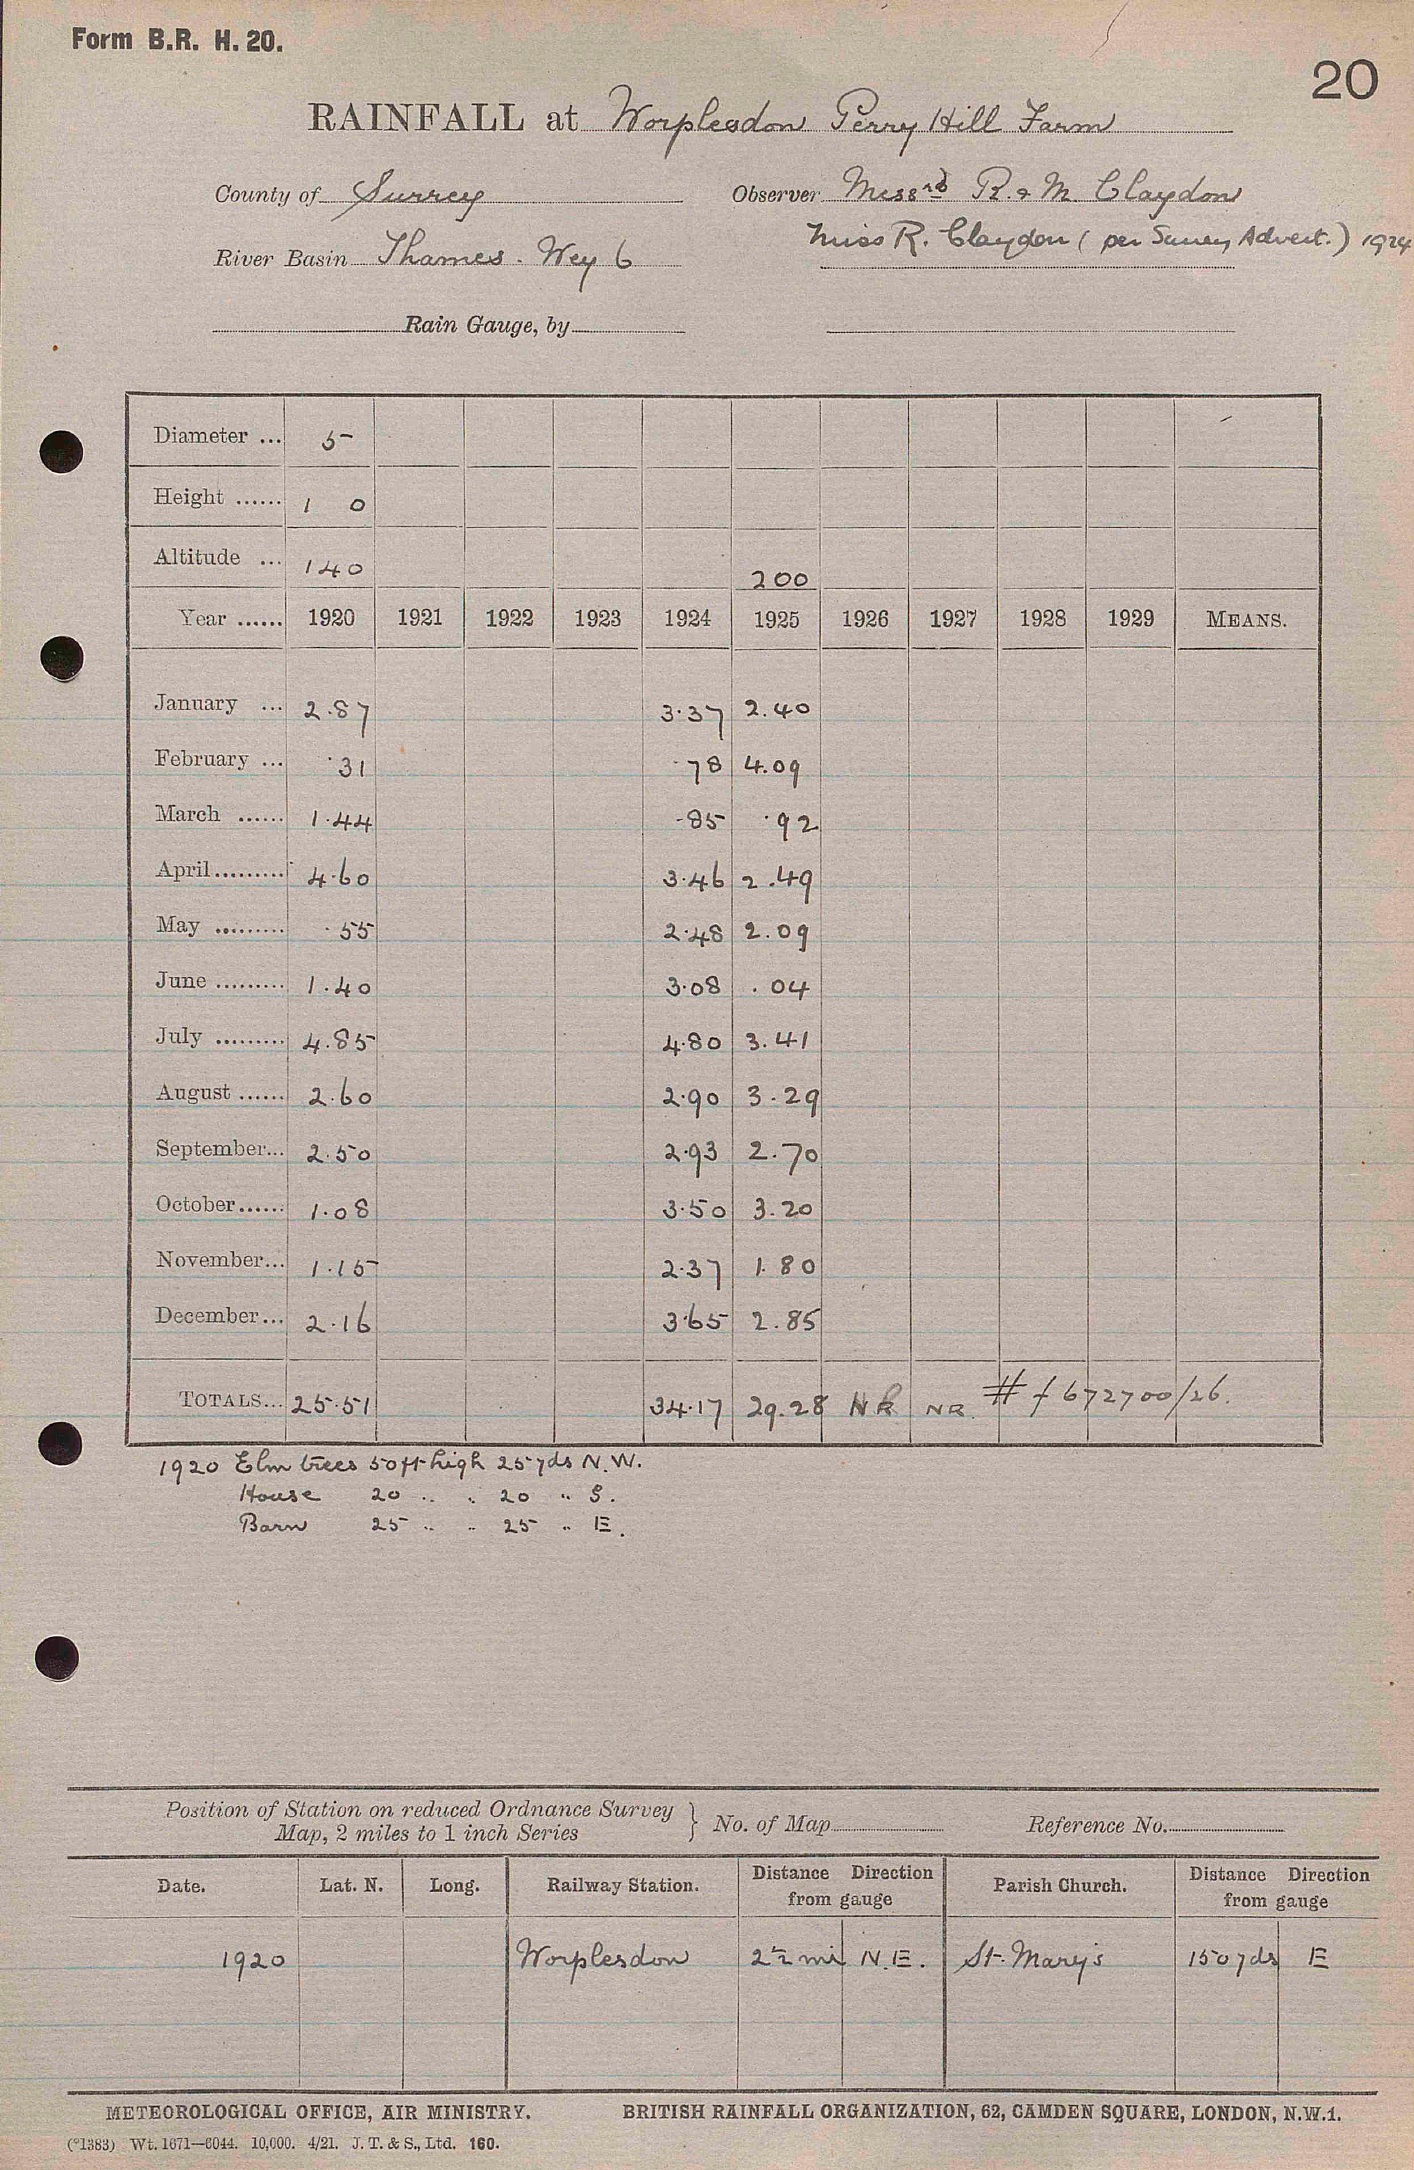 Form B.R. H. 20.
20
RAINFALL at Worplesdon Perry Hill Farm
County of Surrey Observer Messrs R. & M. Claydon
Miss R. Claydon (per Surrey Advert.) 1924
River Basin Thames - Wey 6
Rain Gauge, by
Diameter ... 5
Height ...... 1 0
Altitude ... 140 200
Year ...... 1920 1921 1922 1923 1924 1925 1926 1927 1928 1929 MEANS.
January ... 2.87 3.37 2.40
February ... .31 .78 4.09
March ...... 1.44 .85 .92
April ......... 4.60 3.46 2.49
May ......... .55 2.48 2.09
June ......... 1.40 3.08 .04
July ......... 4.85 4.80 3.41
August ...... 2.60 2.90 3.29
September... 2.50 2.93 2.70
October...... 1.08 3.50 3.20
November... 1.15 2.37 1.80
December... 2.16 3.65 2.85
TOTALS... 25.51 34.17 29.28 NR NR # f 672700/26.
1920 Elm trees 50 ft high 25 yds N.W.
House 20 " " 20 " S.
Barn 25 " " 25 " E.
Position of Station on reduced Ordnance Survey
Map, 2 miles to 1 inch Series } No. of Map Reference No.
Date. Lat. N. Long. Railway Station. Distance Direction from gauge Parish Church. Distance Direction from gauge
1920 Worplesdon 2½ mi N.E. St. Mary's 150 yds E
METEOROLOGICAL OFFICE, AIR MINISTRY. BRITISH RAINFALL ORGANIZATION, 62, CAMDEN SQUARE, LONDON, N.W.1.
(*1383) Wt. 1671—6044. 10,000. 4/21. J. T. & S., Ltd. 160.